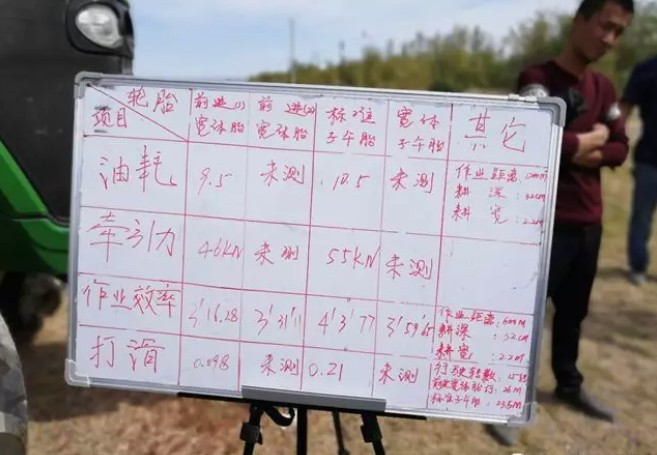 轮胎
项目
前进(1)
宽体胎
前进(2)
宽体胎
标准
子午胎
宽体
子午胎
其它
油耗
9.5
未测
10.5
未测
作业距离
耕深
耕宽
牵引力
46KN
未测
55KN
未测
作业效率
3'16.28
3'31'11
4'3'77
3'59'
作业距离:600M
耕深:32cm
耕宽:2.2m
打滑
0.098
未测
0.21
未测
行驶转数
26M
标准子午胎:23.5M